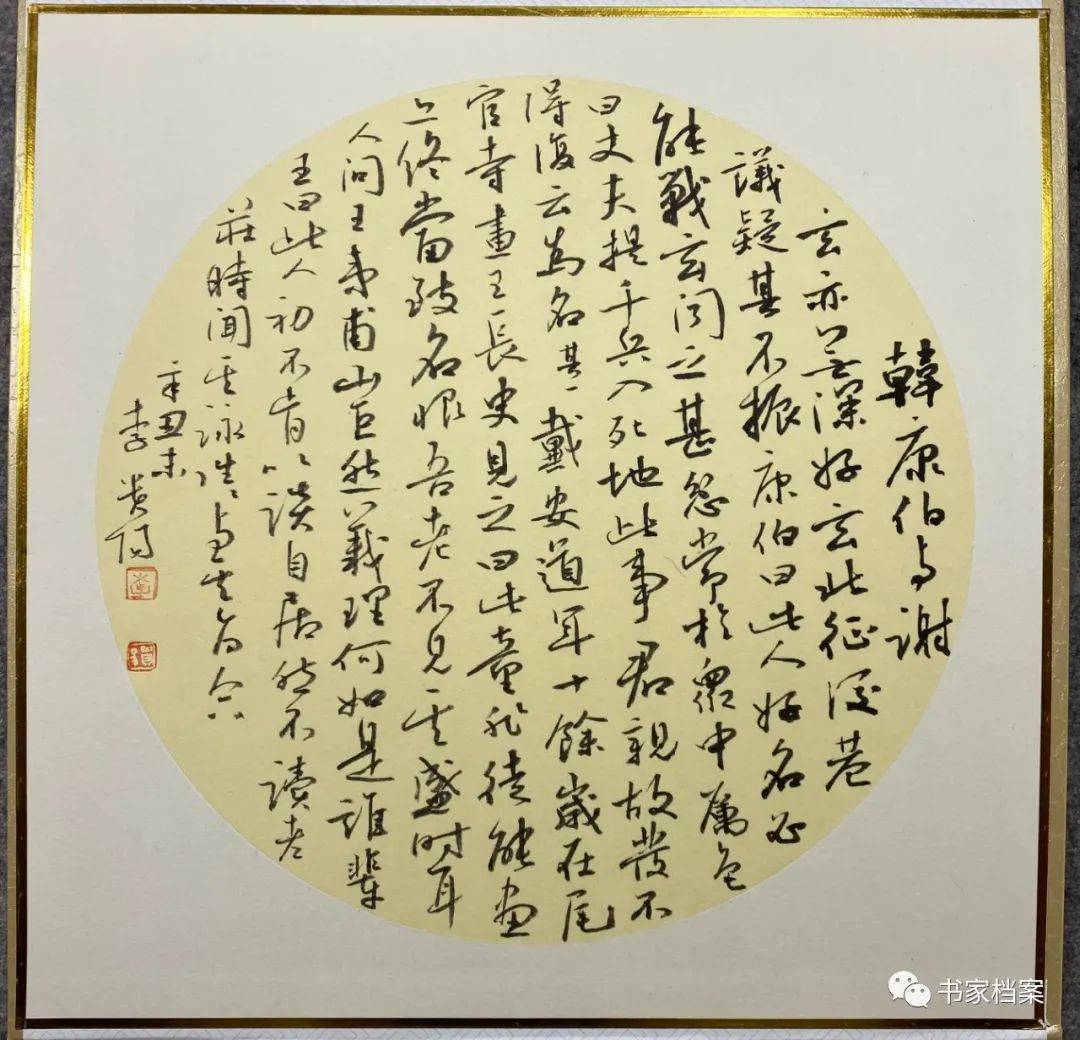 韓康伯与謝
玄亦无深好玄北征後巷
議疑其不振康伯曰此人好名必
能戰玄闻之甚忿常於衆中厲色
曰丈夫提千兵入死地此事君親故發不
得復云為名其一戴安道年十餘歲在瓦
官寺畫王長史見之曰此童非徒能画
亦終當致名恨吾老不見其盛时耳
人问王夷甫山巨然義理何如是誰輩
王曰此人初不肯以談自居然不讀老
莊時聞其詠往往与其旨合
辛丑末
李
书家档案